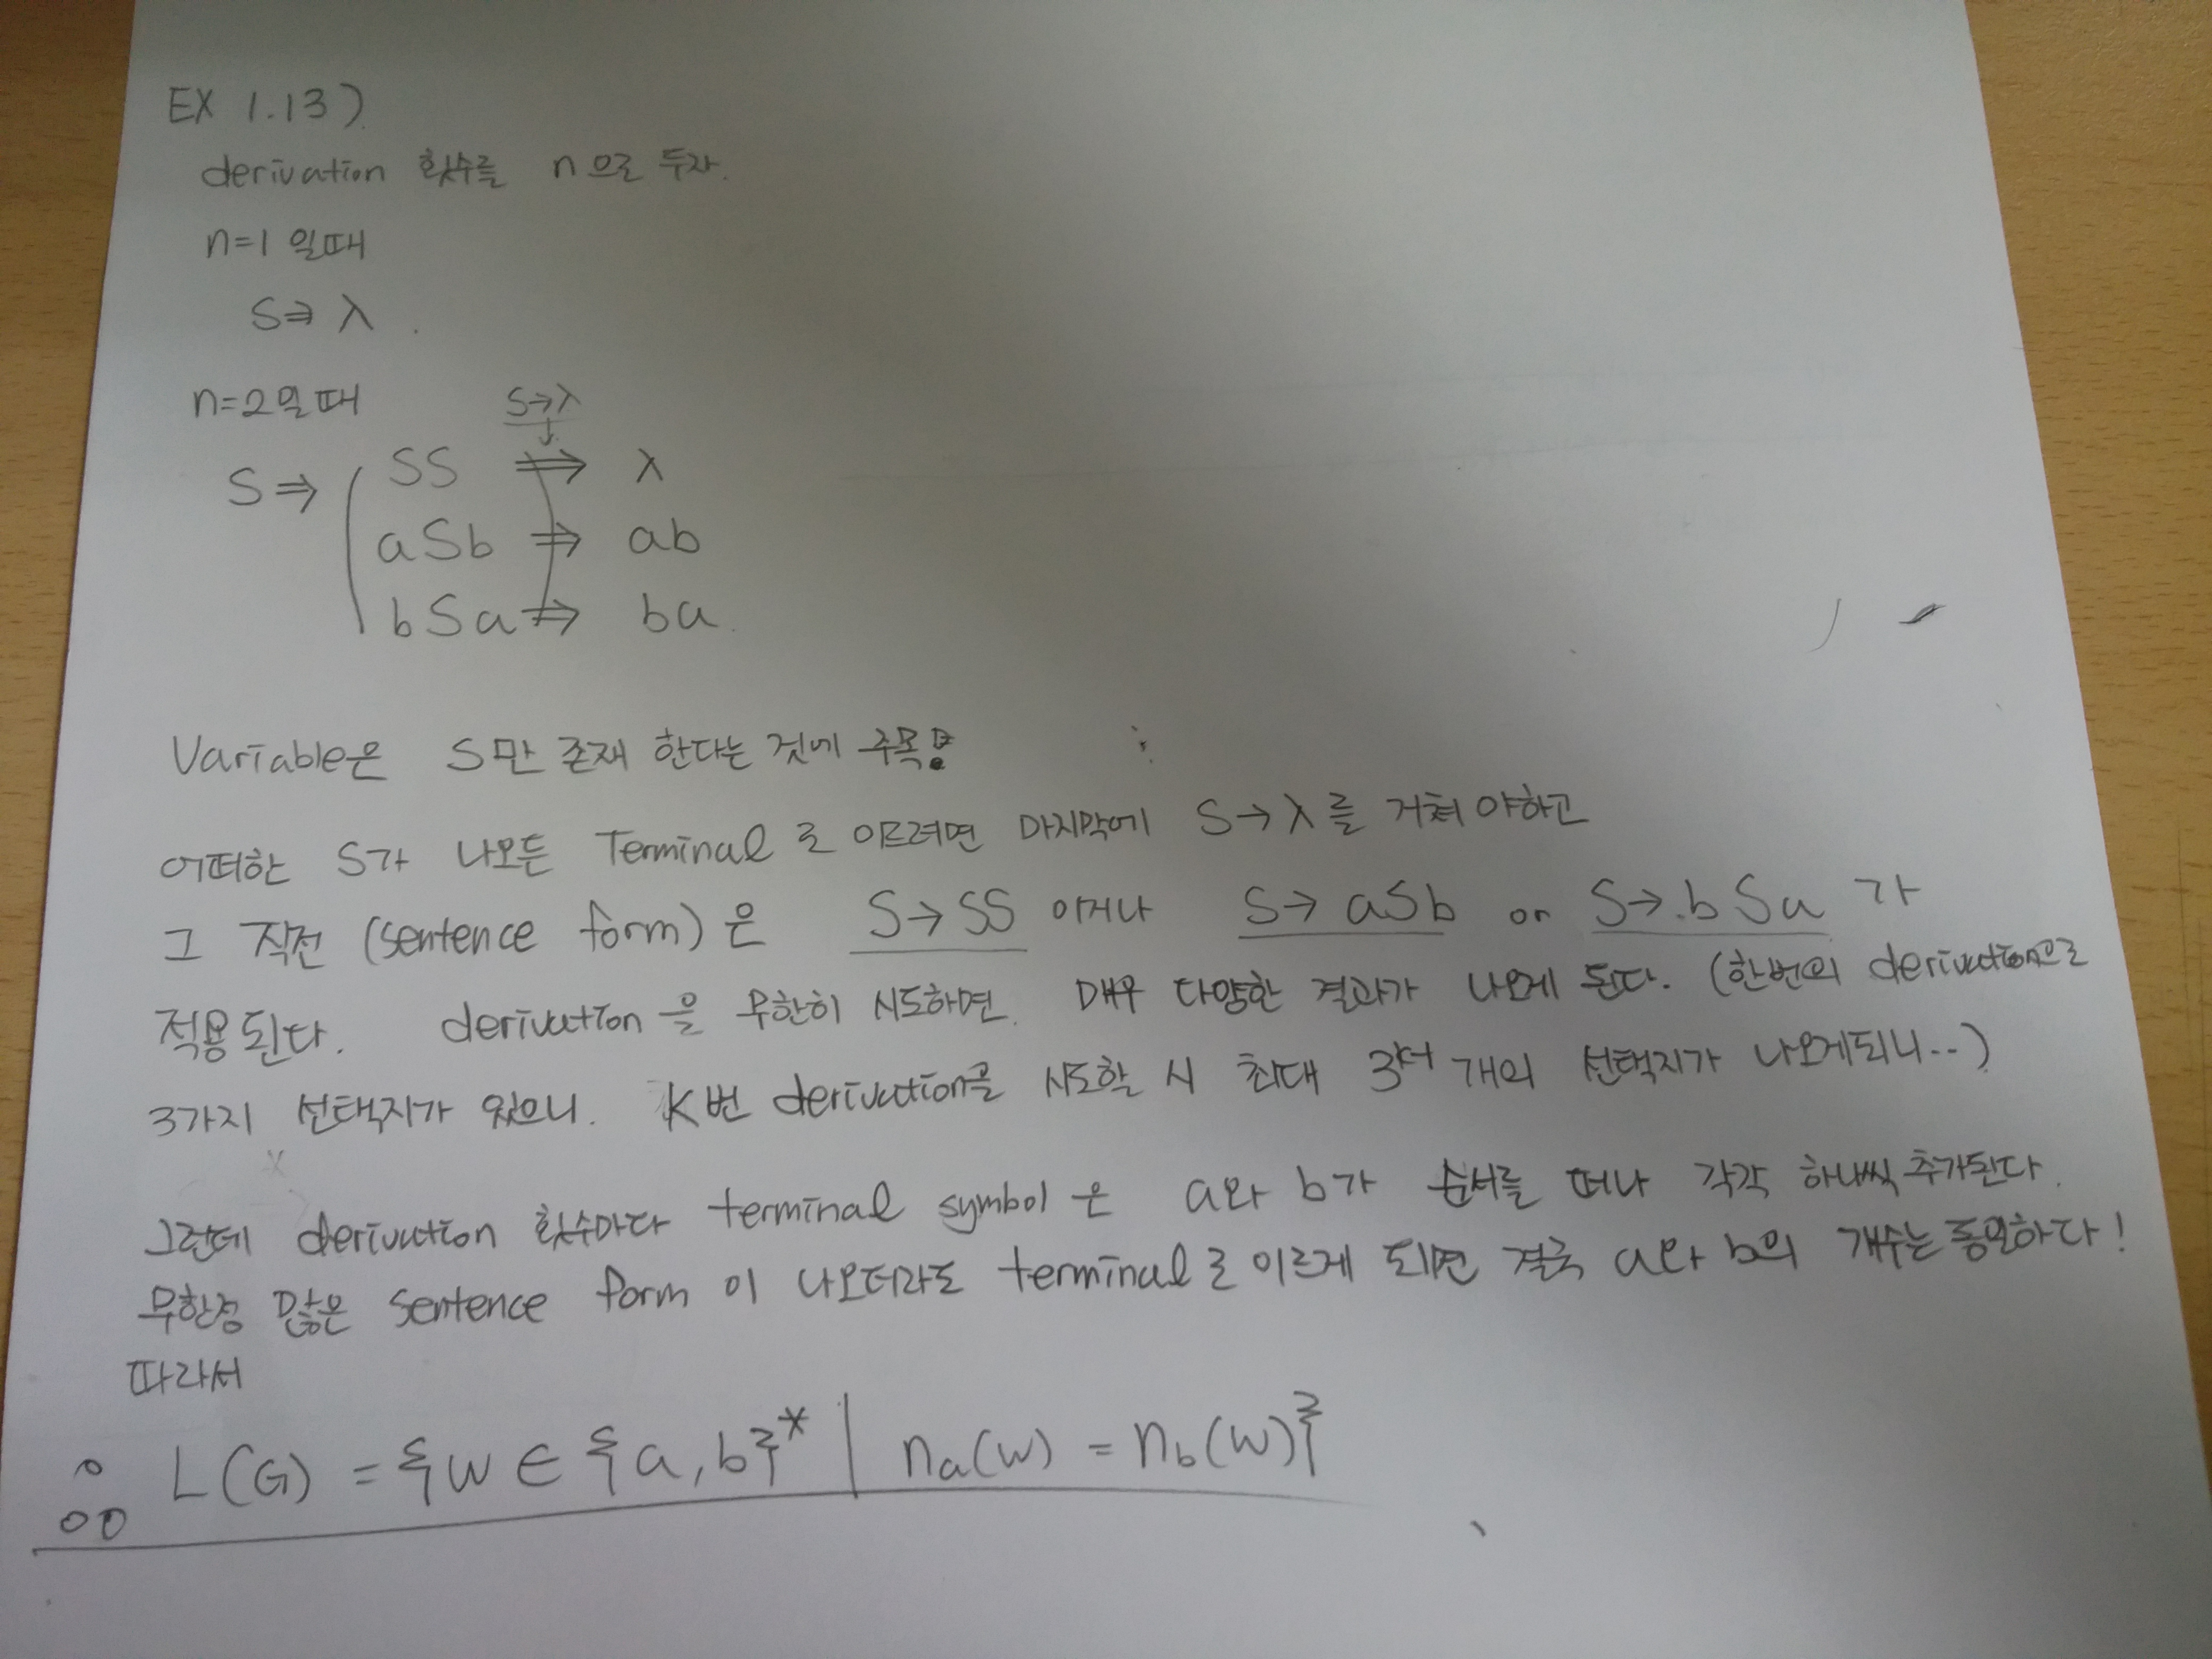 EX 1.13)
derivation 횟수를 n으로 두자.
n=1 일때
S⇒ λ
n=2일때
S→λ
S⇒ SS ⇒ λ
aSb ⇒ ab
bSa ⇒ ba
Variable은 S만 존재 한다는 것에 주목!
어떠한 S가 나오든 Terminal로 이르려면 마지막에 S→λ를 거쳐야하고
그 직전 (sentence form)은 S→SS 이거나 S→aSb or S→bSa 가
적용된다. derivation을 무한히 시도하면 매우 다양한 결과가 나오게 된다. (한번의 derivation으로
3가지 선택지가 있으니. K번 derivation을 시도할 시 최대 개의 선택지가 나오게되니...)
그런데 derivation 횟수마다 terminal symbol은 a와 b가 순서를 떠나 각각 하나씩 추가된다.
무한정 많은 sentence form이 나오더라도 terminal로 이르게 되면 결국 a와 b의 개수는 동일하다!
따라서
∴ L(G) = {w ∈ {a,b}* | na(w) = nb(w)}